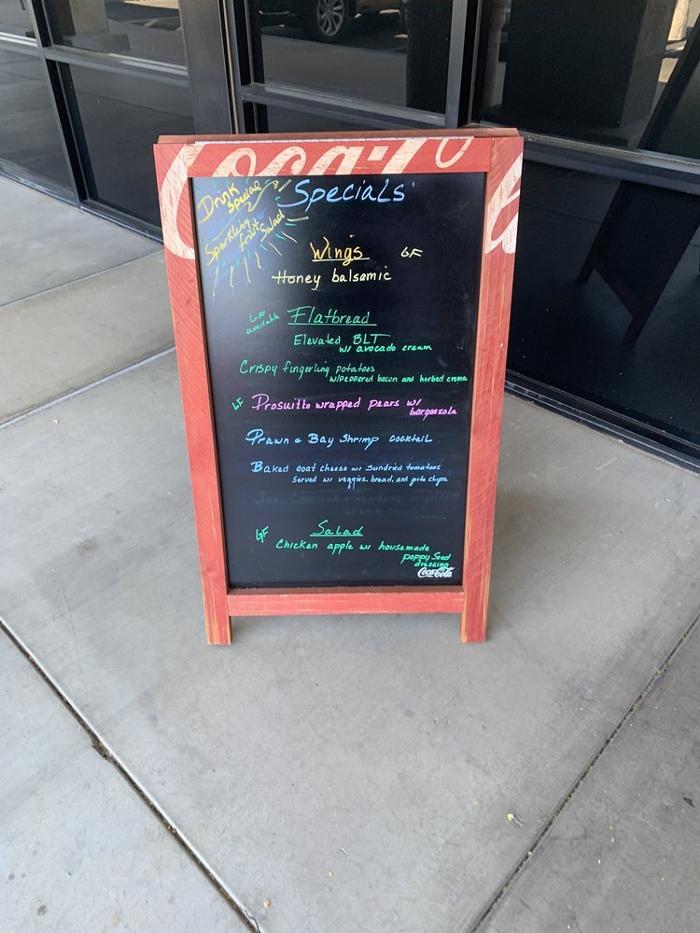 Coca-Co
Drink
Special
Sparkling
fruit Salad
Specials
Wings GF
Honey balsamic
GF
available
Flatbread
Elevated BLT
w/ avocado cream
Crispy fingerling potatoes
w/peppered bacon and herbed crema
GF Prosuitto wrapped pears w/
gorgonzola
Prawn & Bay Shrimp cocktail
Baked goat cheese w/ Sundried tomatoes
Served w/ veggies, bread, and pita chips
GF Salad
Chicken apple w/ housemade
poppy Seed
dressing
Coca-Cola